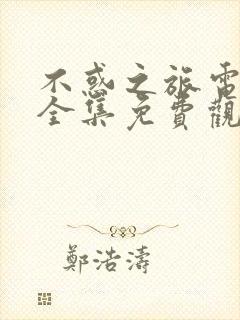 不惑之旅電
全集免費觀
鄭浩濤